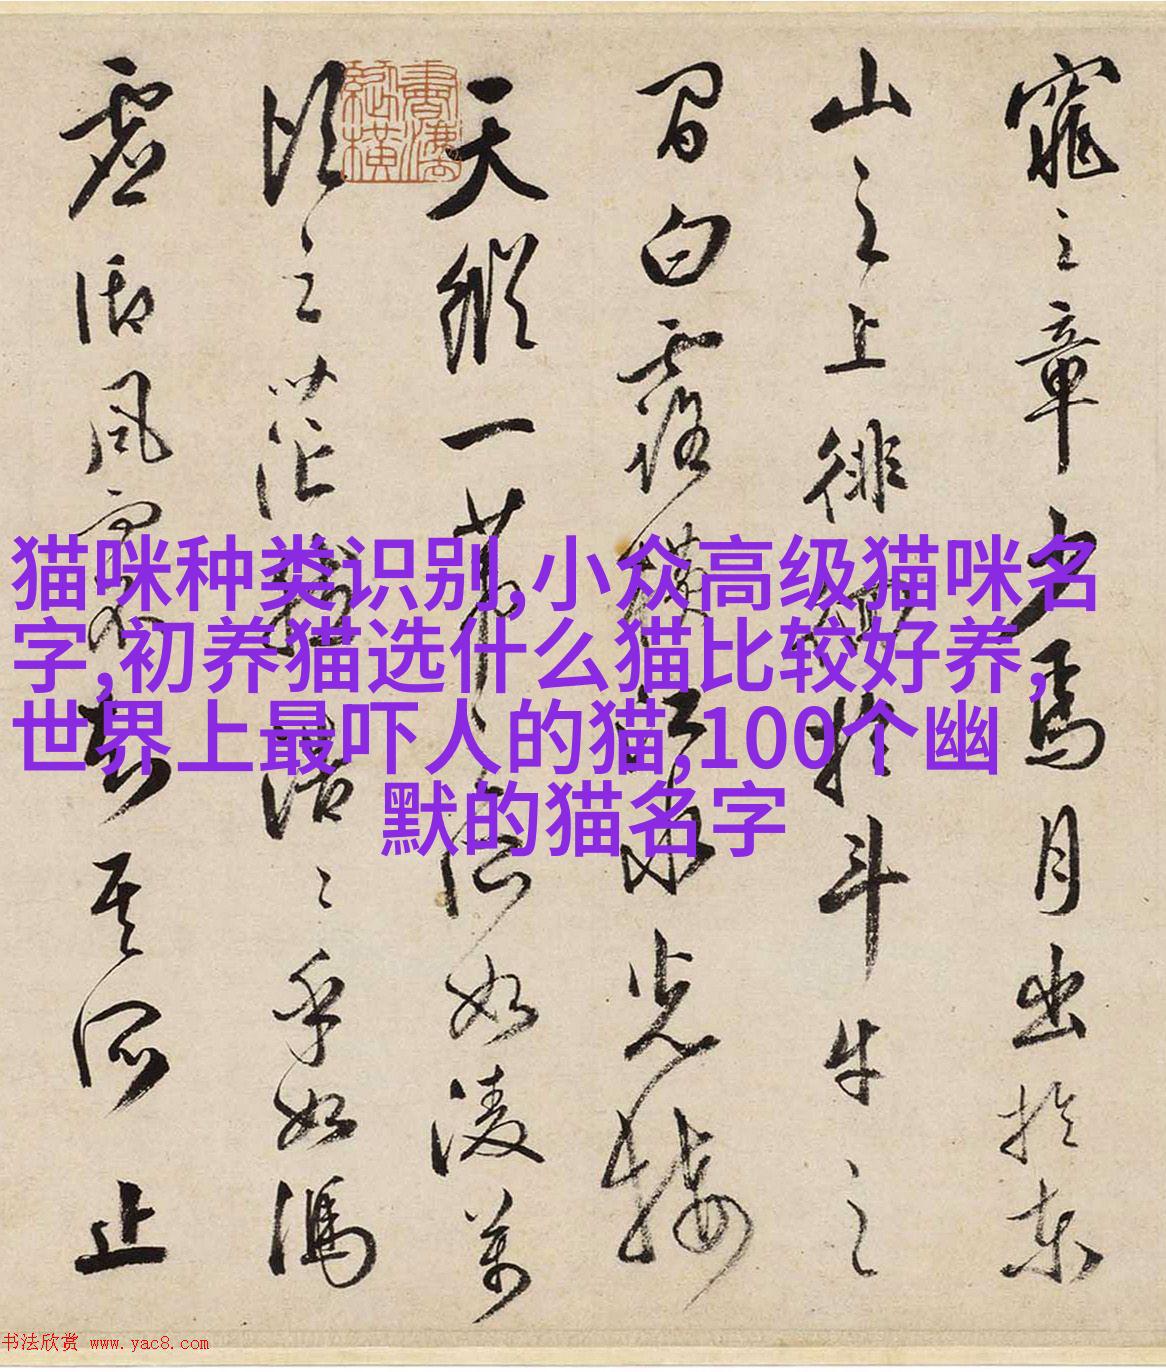 窕之章少焉月出於東
山之上徘徊於斗牛之
間白露橫江水光接
天縱一葦之所如凌萬
頃之茫然浩〻乎如馮
虛御風而不知其所止
猫咪种类识别,小众高级猫咪名
字,初养猫选什么猫比较好养,
世界上最吓人的猫,100个幽
默的猫名字
书法欣赏 www.yac8.com